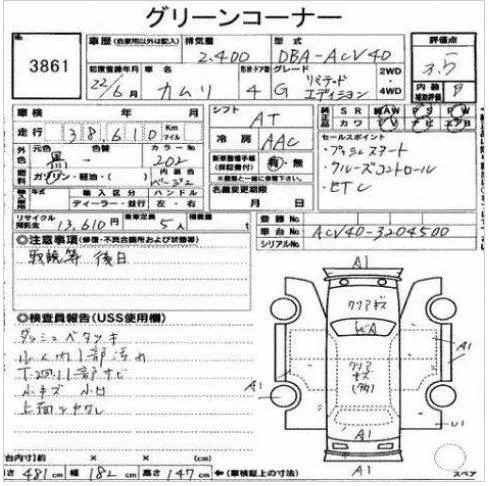 グリーンコーナー
3861
車歴(自家用以外は記入) 排気量 2.400 型式 DBA-ACV40
評価点 3.5
初度登録年月 22/6月 車名 カムリ 形状・ドア数 4 グレード G リミテッドエディション 2WD 4WD
内装補助評価 B
車検 年 月
シフト AT
SR AW PS PW
カワ
走行 38,610 Km マイル
冷房 AAC
セールスポイント
・プッシュスタート
・クルーズコントロール
・ETC
外色 元色 黒 色替 カラーNo 202
燃料 ガソリン・軽油・( ) 内装色 ベージュ
新車整備手帳(保証書付) 有・無
年式 輸入区分 ハンドル
ディーラー・並行 左・右
名義変更期限
月 日
リサイクル預託金 13,610円 乗車定員 5人 積載量 t
登録No
車台No ACV40-3204500
シリアルNo
◎注意事項(修復・不具合箇所および状態等)
取説等 後日
◎検査員報告(USS使用欄)
ダッシュベタツキ
小キズ 小凹
A1
クリアキズ
A
クリアキズ
A1
A1
U1
A1
A1
スペア
台内寸)約 × × (cm)
さ 481cm 幅 182cm 高さ 147cm ←(車検証上の寸法)